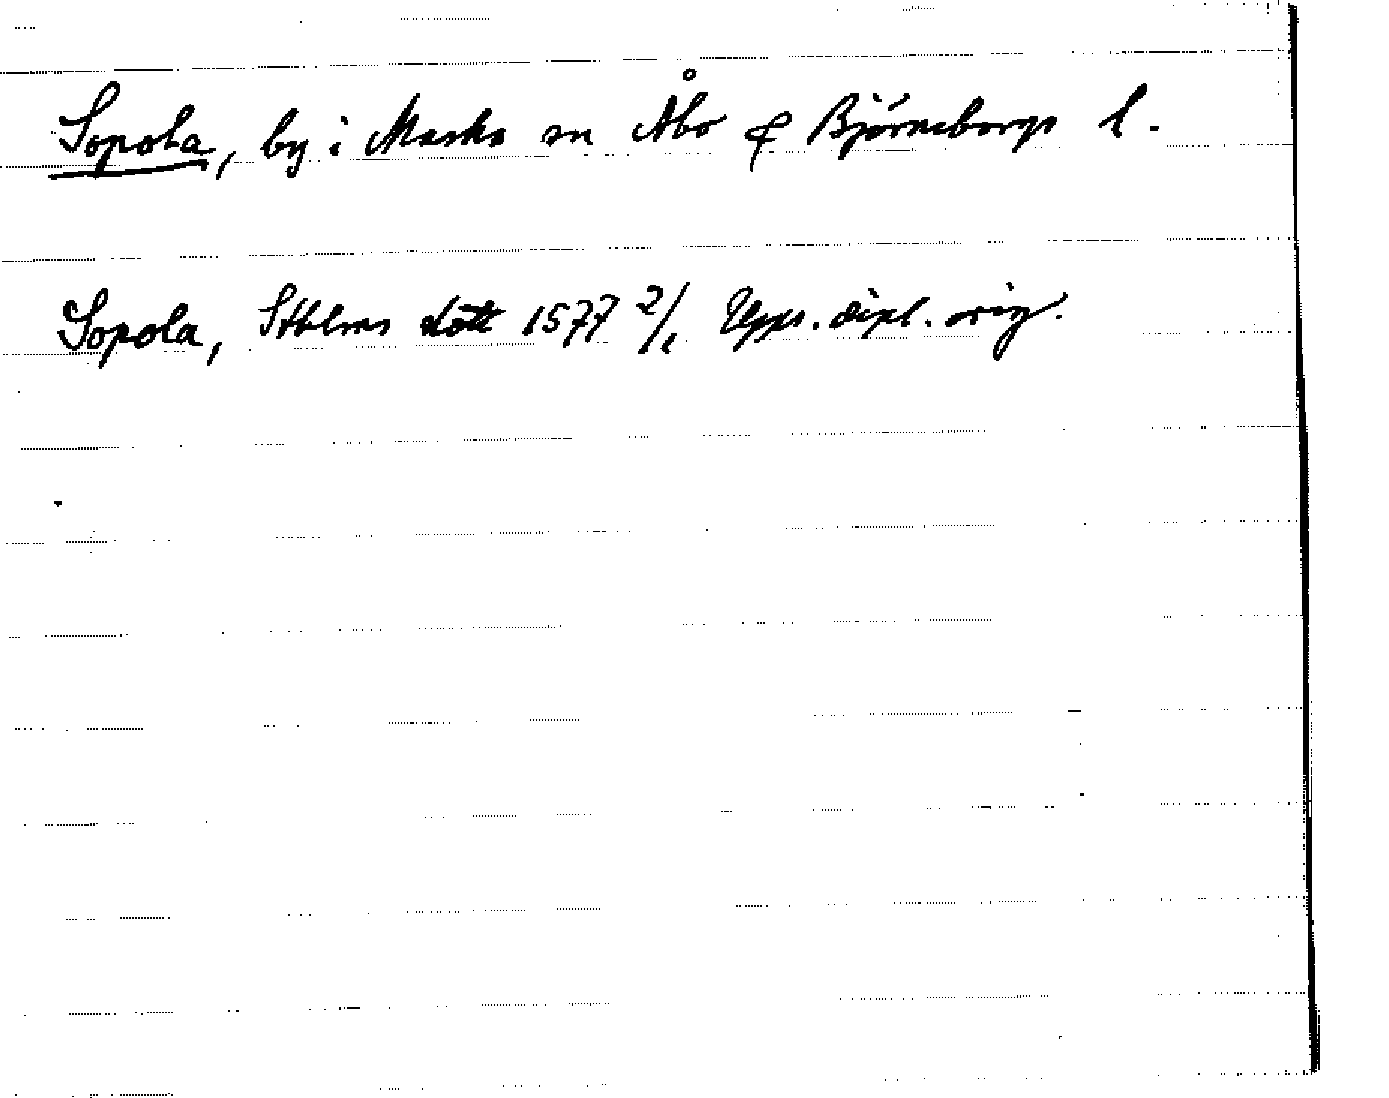 Sopola, by i Masko sn Åbo & Björneborgs l.
Sopola, Sthlms slott 1577 2/1 Upps. dipl. orig.